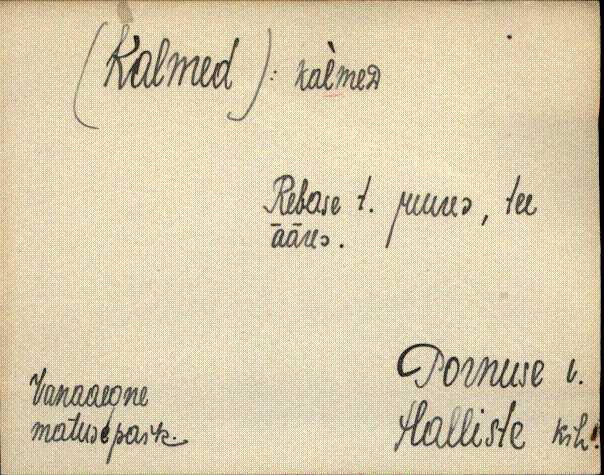 (Kalmed): kal̀meᴅ
Rebase t. juures, tee
ääres.
Vanaaegne
matusepaik.
Pornuse v.
Halliste khk.